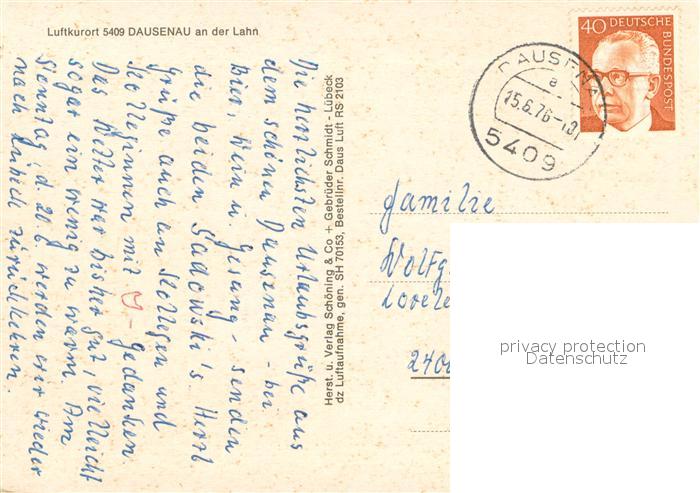 Luftkurort 5409 DAUSENAU an der Lahn
Die herzlichsten Urlaubsgrüße aus
dem schönen Dausenau - bei
Bier, Wein u. Gesang - senden
die beiden Sadowski's. Herzl.
Grüße auch an Kollegen und
Kolleginnen mit - Gedanken
Das Wetter war bisher gut, vielleicht
sogar ein wenig zu warm. Am
Sonntag, d. 20.6. werden wir wieder
nach Lübeck zurückkehren.
Herst. u. Verlag Schöning & Co + Gebrüder Schmidt - Lübeck
dz Luftaufnahme, gen. SH 70153, Bestellnr. Daus Luft RS 2103
40 DEUTSCHE
BUNDESPOST
DAUSENA
a
15.6.76-10
5409
Familie
Wolfg
2400
privacy protection
Datenschutz